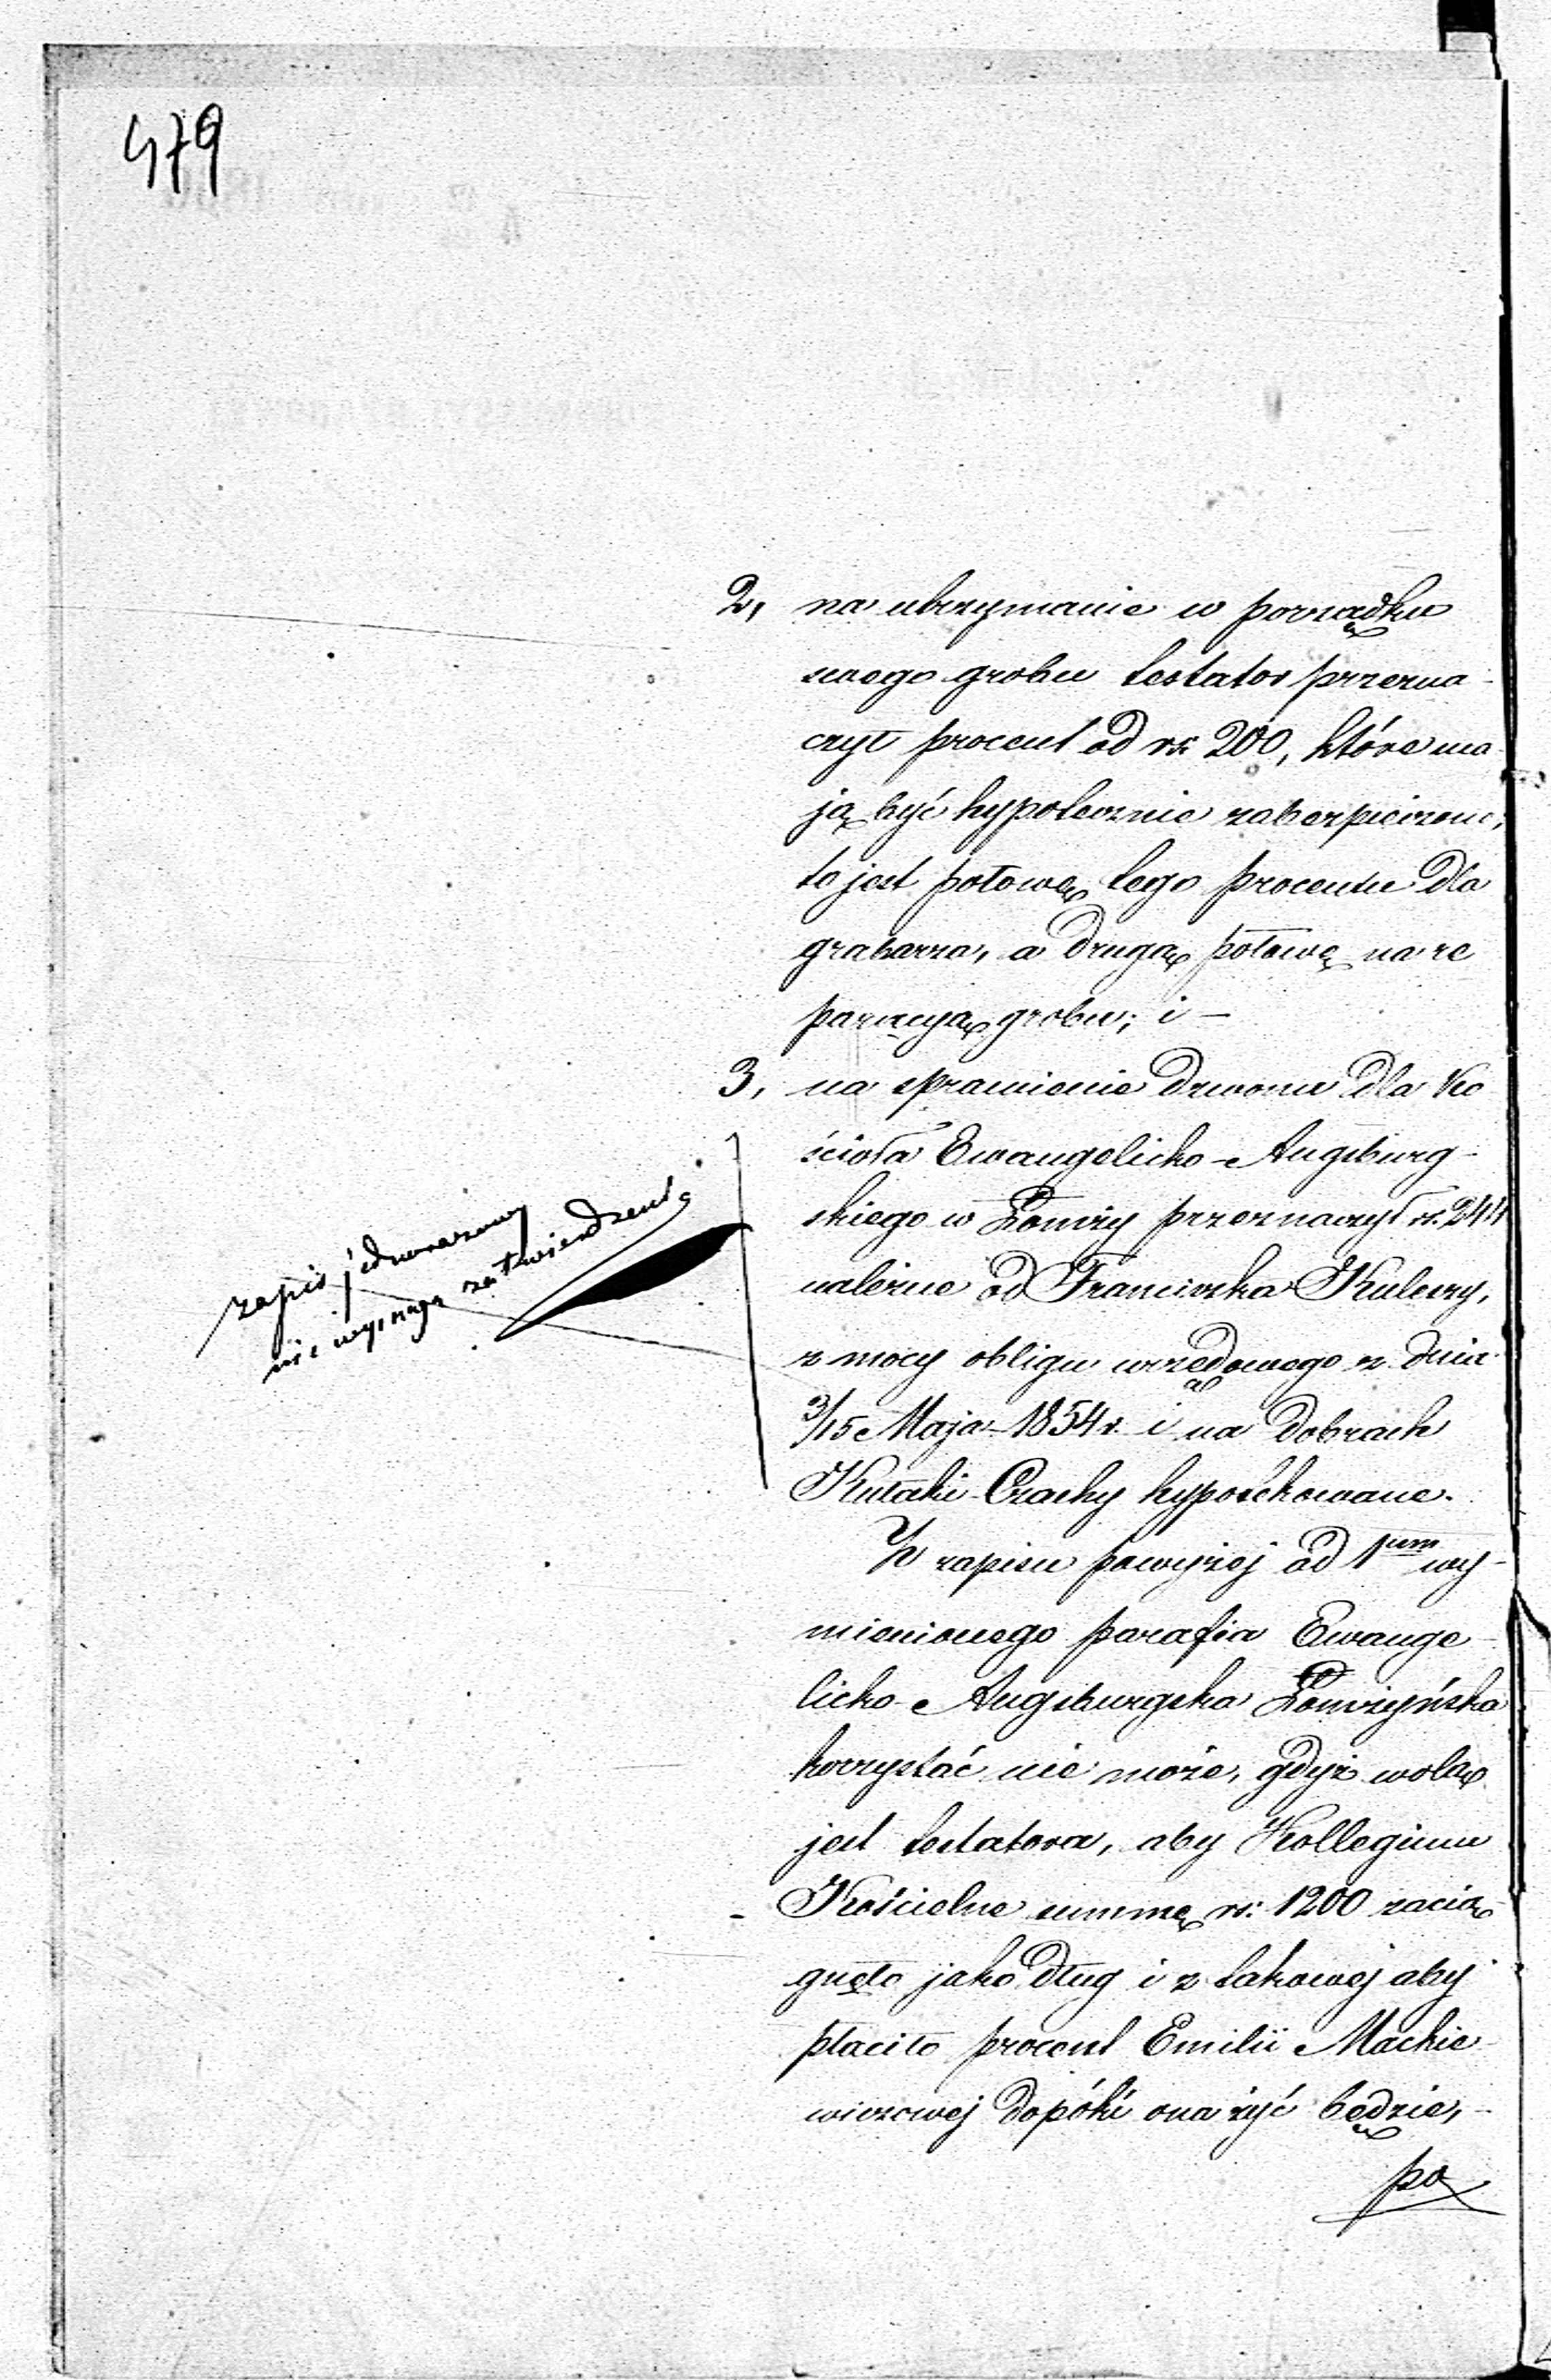 479
2, na utrzymanie w porządku
swego grobu testator przezna-
czył procent od rs: 200, które ma-
ją być hypotecznie zabezpieczone,
to jest połowę tego procentu dla
grabarza, a drugą połowę na re
paracyą grobu; i —
3, na sprawienie dzwonu dla Ko
ścioła Ewangelicko-Augsburg-
skiego w Łomży przeznaczył rs. 244
należne od Franciszka Kuleszy,
z mocy obligu urzędowego z dnia
3/15 Maja 1854 r. i na dobrach
Kułaki-Czachy hypotekowane.
zapis jednorazowy
nie wymaga zatwierdzenia
Z zapisu powyżej ad 1um wy-
mienionego parafia Ewange-
licko-Augsburgska Łomżyńska
korzystać nie może, gdyż wolą
jest testatora, aby Kollegium
Kościelne summę rs: 1200 zacią-
gnęło jako dług i z takowej aby
płaciło procent Emilii Mackie
wiczowej dopóki ona żyć będzie, -
po